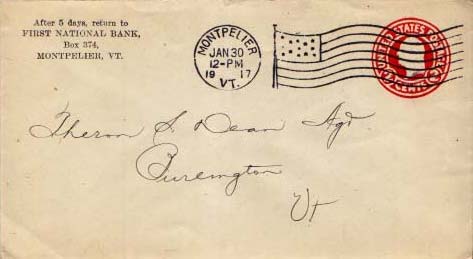 After 5 days, return to
FIRST NATIONAL BANK,
Box 374,
MONTPELIER, VT.
MONTPELIER
JAN 30
12-PM
19 17
VT.
UNITED STATES POSTAGE
Theron S. Dean Agt
Burlington
Vt